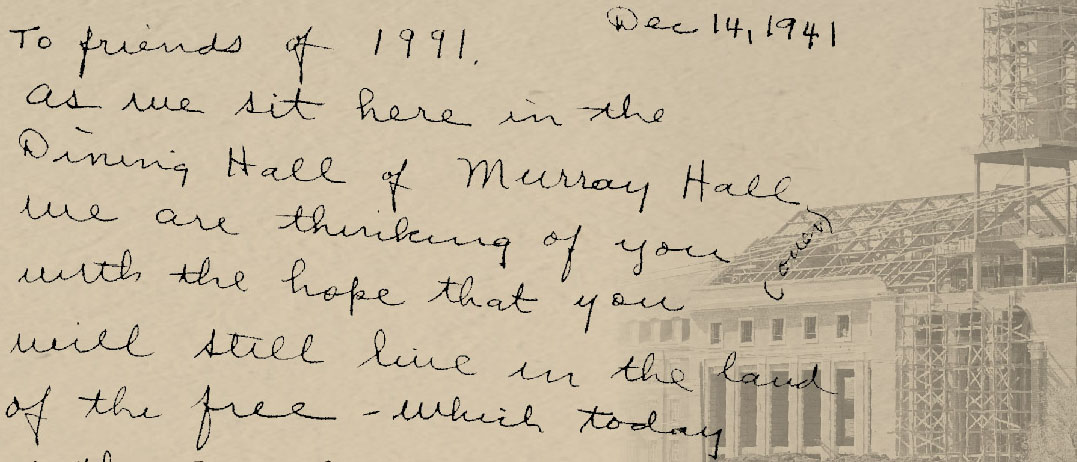 Dec 14, 1941
To friends of 1991.
As we sit here in the
Dining Hall of Murray Hall,
we are thinking of you
(over)
with the hope that you
will still live in the land
of the free - which today